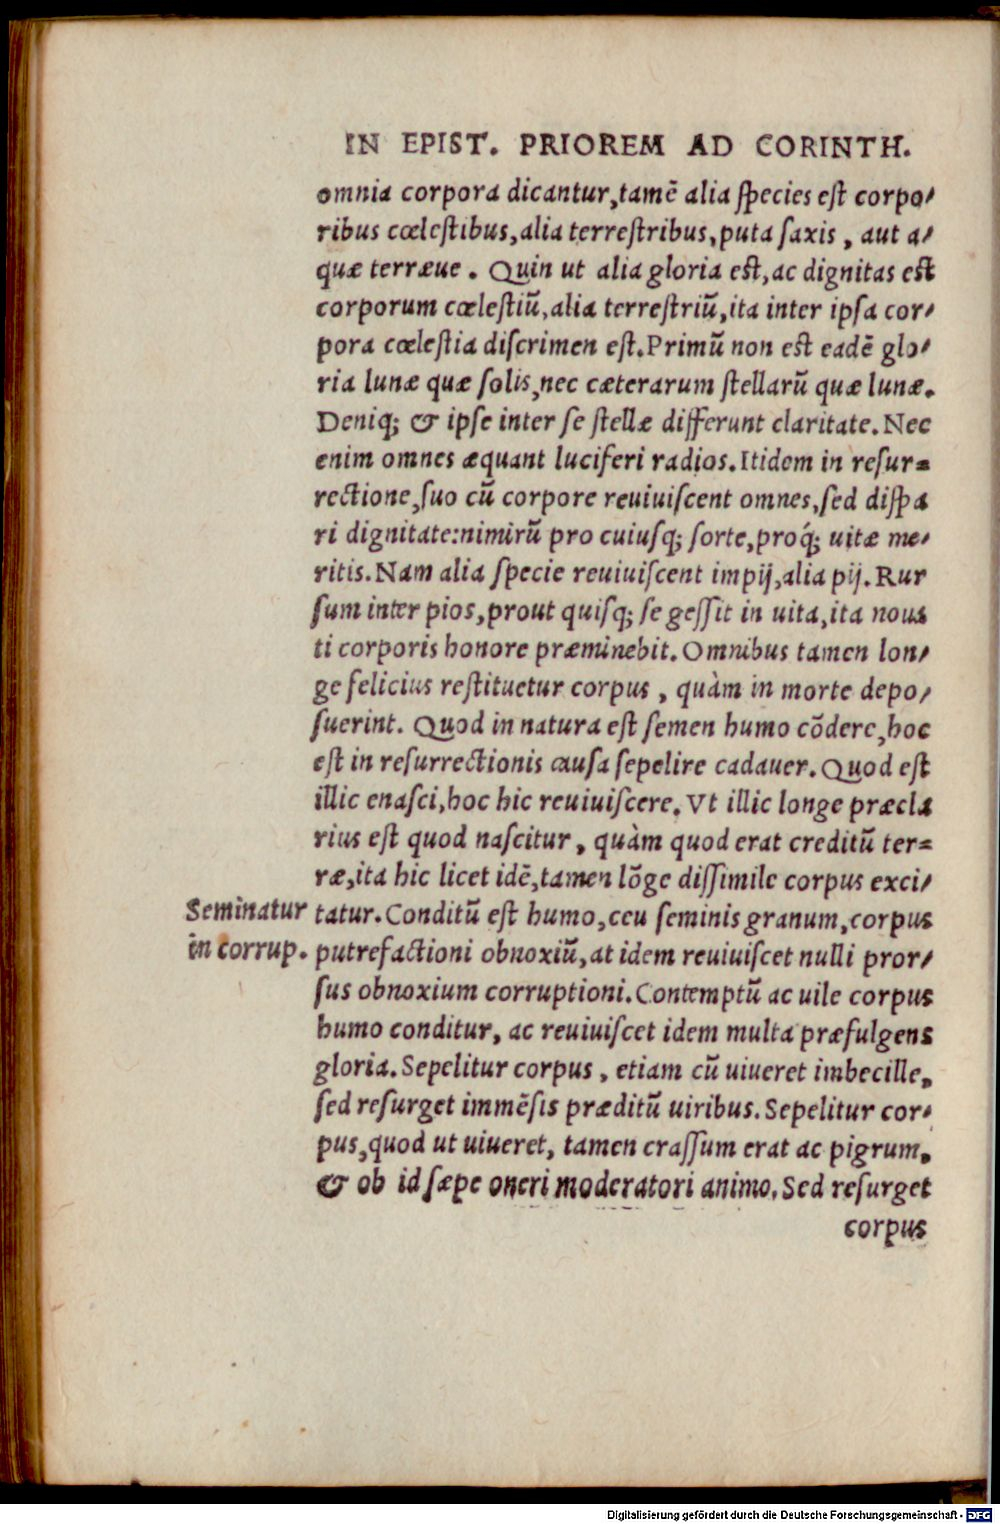 IN EPIST. PRIOREM AD CORINTH.
omnia corpora dicantur, tamē alia species est corpo/
ribus cœlestibus, alia terrestribus, puta saxis, aut a/
quæ terræue. Quin ut alia gloria est, ac dignitas est
corporum cœlestiū, alia terrestriū, ita inter ipsa cor/
pora cœlestia discrimen est. Primū non est eadē glo/
ria lunæ quæ solis, nec cæterarum stellarū quæ lunæ.
Deniq; & ipse inter se stellæ differunt claritate. Nec
enim omnes æquant luciferi radios. Itidem in resur=
rectione, suo cū corpore reuiuiscent omnes, sed dispa
ri dignitate: nimirū pro cuiusq; sorte, proq́; uitæ me/
ritis. Nam alia specie reuiuiscent impij, alia pij. Rur
sum inter pios, prout quisq; se gessit in uita, ita noua
ti corporis honore præminebit. Omnibus tamen lon/
ge felicius restituetur corpus, quàm in morte depo/
suerint. Quod in natura est semen humo cōdere, hoc
est in resurrectionis causa sepelire cadauer. Quod est
illic enasci, hoc hic reuiuiscere. Vt illic longe præcla
rius est quod nascitur, quàm quod erat creditū ter=
ræ, ita hic licet idē, tamen lōge dissimile corpus exci/
Seminatur
tatur. Conditū est humo, ceu seminis granum, corpus
in corrup.
putrefactioni obnoxiū, at idem reuiuiscet nulli pror/
sus obnoxium corruptioni. Contemptū ac uile corpus
humo conditur, ac reuiuiscet idem multa præfulgens
gloria. Sepelitur corpus, etiam cū uiueret imbecille,
sed resurget immēsis præditū uiribus. Sepelitur cor/
pus, quod ut uiueret, tamen crassum erat ac pigrum,
& ob id sæpe oneri moderatori animo. Sed resurget
corpus
Digitalisierung gefördert durch die Deutsche Forschungsgemeinschaft - DFG